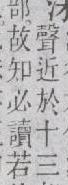 聲近於十三
部故知必讀若